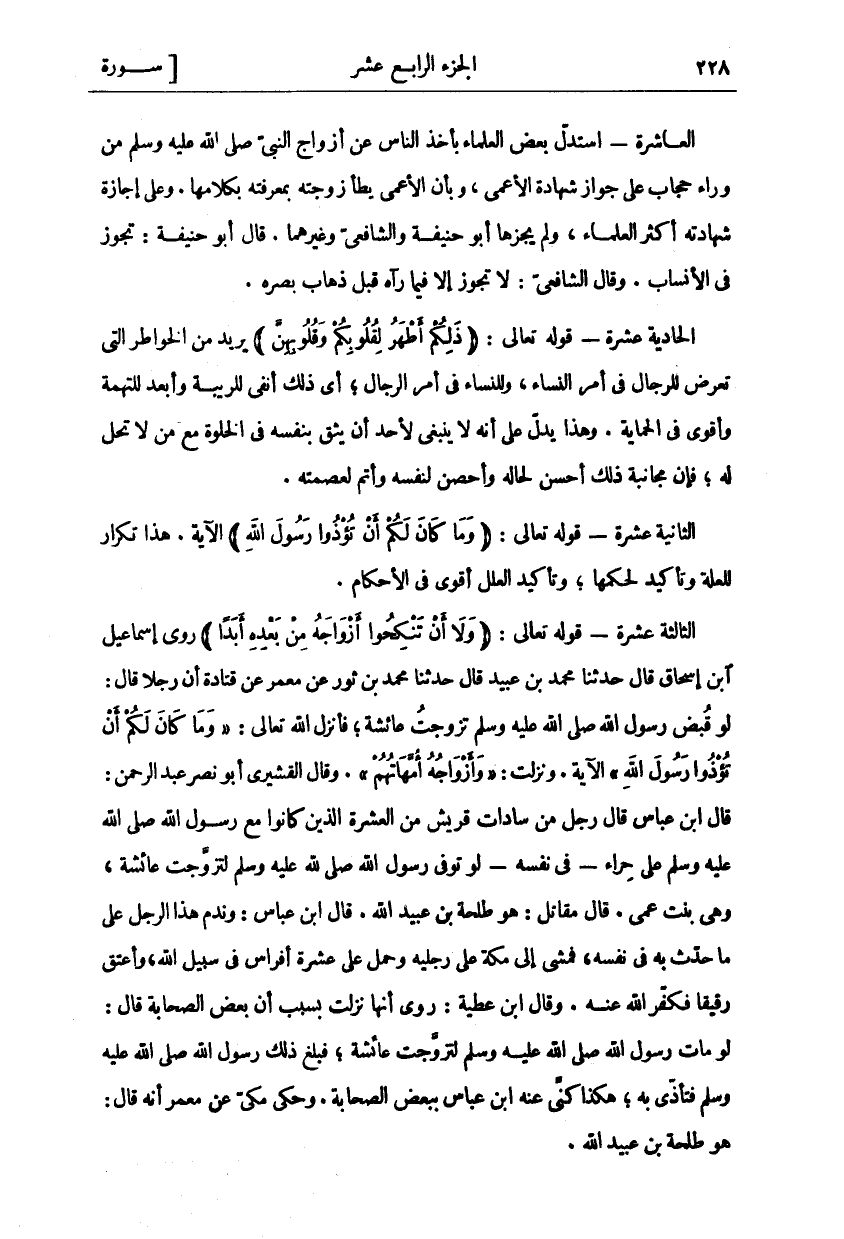 ٢٢٨ الجزء الرابع عشر [ ســورة
العــاشرة — استدلّ بعض العلماء بأخذ الناس عن أزواج النبيّ صلى الله عليه وسلم من
وراء حجاب على جواز شهادة الأعمى ، وبأن الأعمى يطأ زوجته بمعرفته بكلامها . وعلى إجازة
شهادته أكثر العلمــاء ، ولم يجزها أبو حنيفــة والشافعىّ وغيرهما . قال أبو حنيفــة : تجوز
فى الأنساب . وقال الشافعىّ : لا تجوز إلا فيما رآه قبل ذهاب بصره .
الحادية عشرة — قوله تعالى : ﴿ ذَلِكُمْ أَطْهَرُ لِقُلُوبِكُمْ وَقُلُوبِهِنَّ ﴾ يريد من الخواطر التى
تعرض للرجال فى أمر النساء ، وللنساء فى أمر الرجال ؛ أى ذلك أنفى للريبــة وأبعد للتهمة
وأقوى فى الحماية . وهذا يدلّ على أنه لا ينبغى لأحد أن يثق بنفسه فى الخلوة مع من لا تحل
له ؛ فإن مجانبة ذلك أحسن لحاله وأحصن لنفسه وأتم لعصمته .
الثانية عشرة — قوله تعالى : ﴿ وَمَا كَانَ لَكُمْ أَنْ تُؤْذُوا رَسُولَ اللَّهِ ﴾ الآية . هذا تكرار
للعلة وتأكيد لحكمها ؛ وتأكيد العلل أقوى فى الأحكام .
الثالثة عشرة — قوله تعالى : ﴿ وَلَا أَنْ تَنْكِحُوا أَزْوَاجَهُ مِنْ بَعْدِهِ أَبَدًا ﴾ روى إسماعيل
آبن إسحاق قال حدثنا محمد بن عبيد قال حدثنا محمد بن ثور عن معمر عن قتادة أن رجلا قال :
لو قُبض رسول الله صلى الله عليه وسلم تزوجتُ عائشة ؛ فأنزل الله تعالى : « وَمَا كَانَ لَكُمْ أَنْ
تُؤْذُوا رَسُولَ اللَّهِ » الآية . ونزلت : « وَأَزْوَاجُهُ أُمَّهَاتُهُمْ » . وقال القشيرى أبو نصر عبد الرحمن :
قال ابن عباس قال رجل من سادات قريش من العشرة الذين كانوا مع رســول الله صلى الله
عليه وسلم على حِراء — فى نفسه — لو توفى رسول الله صلى لله عليه وسلم لتزوّجت عائشة ،
وهى بنت عمى . قال مقاتل : هو طلحة بن عبيد الله . قال ابن عباس : وندم هذا الرجل على
ما حدّث به فى نفسه ، فمشى إلى مكة على رجليه وحمل على عشرة أفراس فى سبيل الله ، وأعتق
رقيقا فكفّر الله عنــه . وقال ابن عطية : روى أنها نزلت بسبب أن بعض الصحابة قال :
لو مات رسول الله صلى الله عليــه وسلم لتزوّجت عائشة ؛ فبلغ ذلك رسول الله صلى الله عليه
وسلم فتأذّى به ؛ هكذا كنّى عنه ابن عباس ببعض الصحابة . وحكى مكىّ عن معمر أنه قال :
هو طلحة بن عبيد الله .